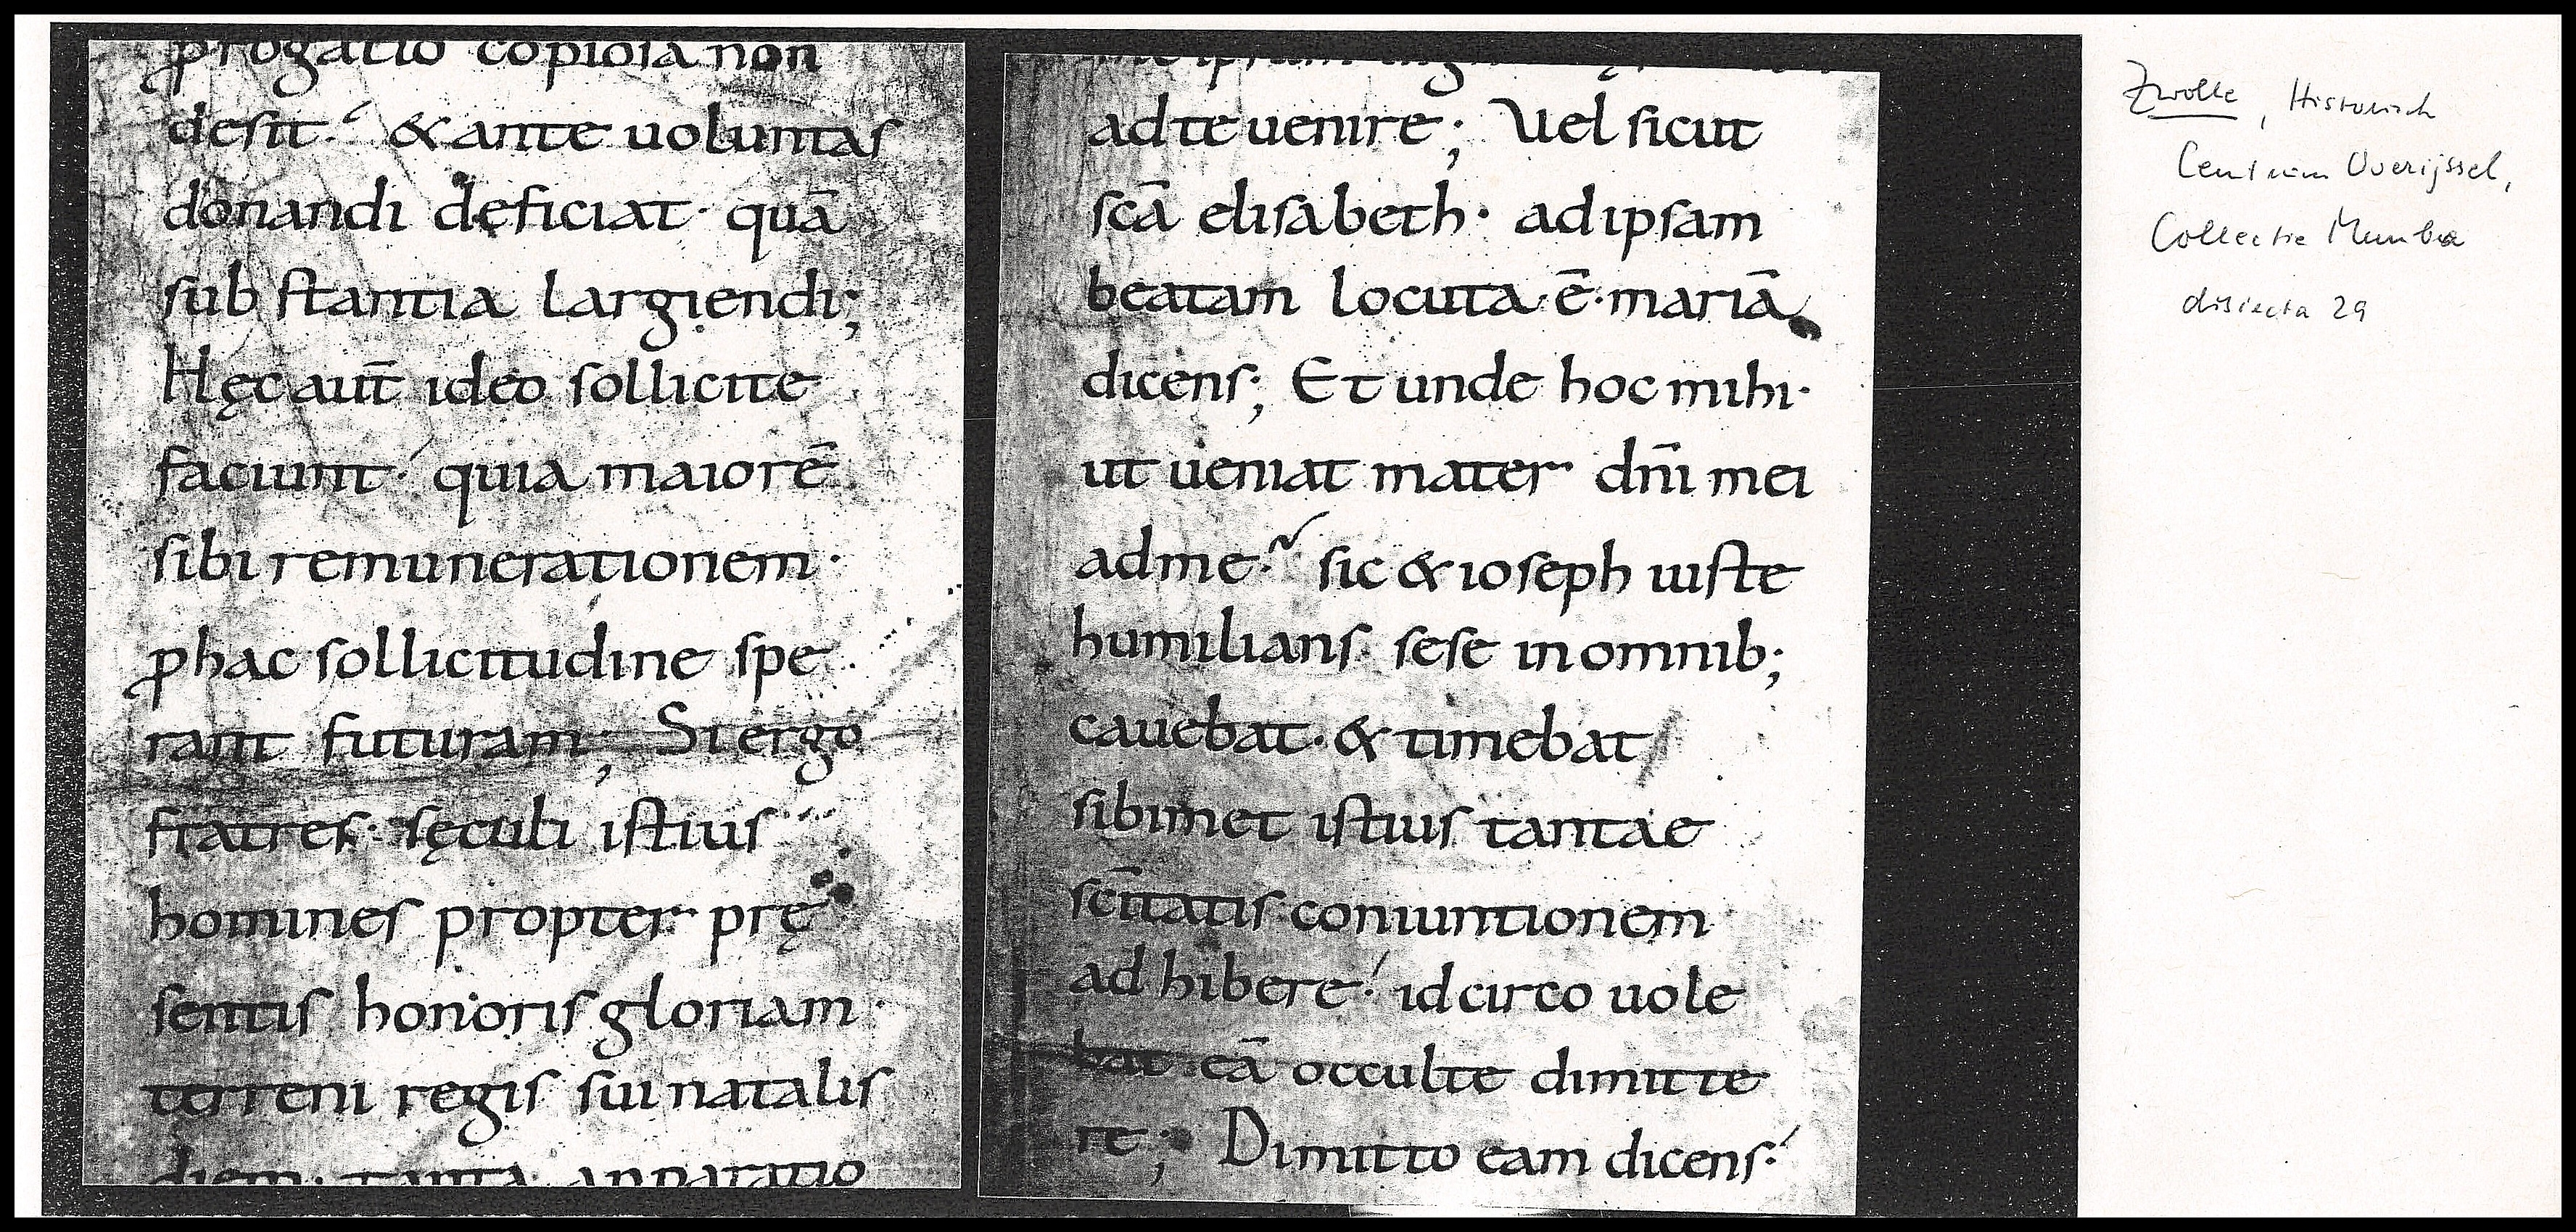 ꝓrogatio copiosa non
desit. & ante uoluntas
donandi deficiat· quā
substantia largiendi;
Hęc aut̄ ideo sollicite
faciunt· quia maiorē
sibi remunerationem·
ꝓ hac sollicitudine spe
rant futuram; Si ergo
fratres· sęculi istius
homines propter prę
sentis honoris gloriam·
terreni regis sui natalis
diem· tanta apparatio
ad te uenire; Uel sicut
sc̄a elisabeth· ad ipsam
beatam locuta ē· mariā
dicens; Et unde hoc mihi·
ut ueniat mater dn̄i mei
ad me· sic & ioseph iuste
humilians sese in omnib;
cauebat· & timebat
sibimet istius tantae
sc̄itatis coniuntionem
adhibere· idcirco uole
bat eā occulte dimitte
re; Dimitto eam dicens·
Zwolle, Historisch
Centrum Overijssel,
Collectie Membra
disiecta 29